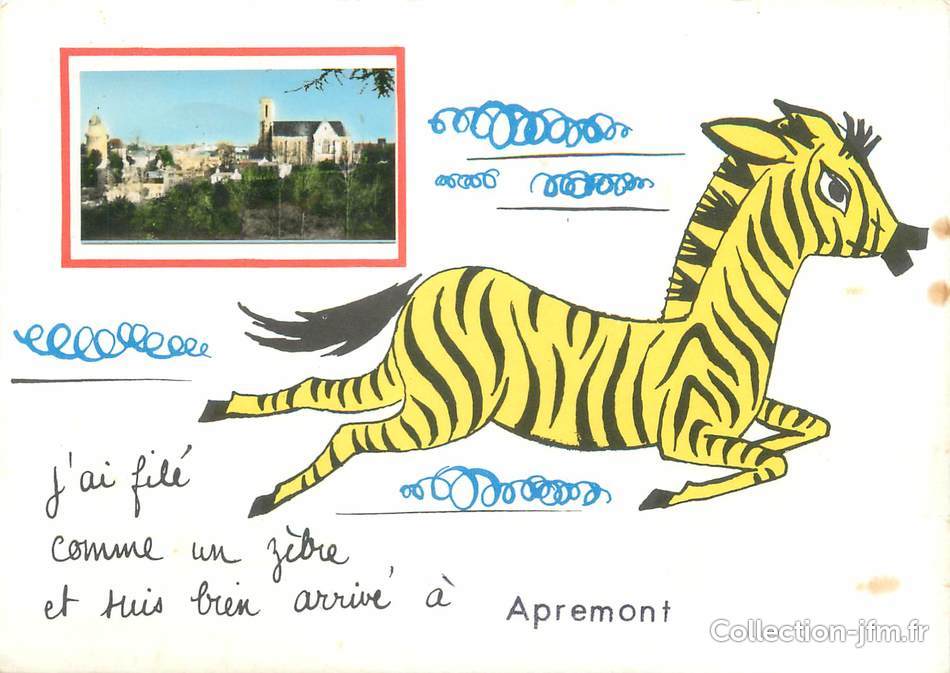 j'ai filé
comme un zèbre
et suis bien arrivé à Apremont
Collection-jfm.fr